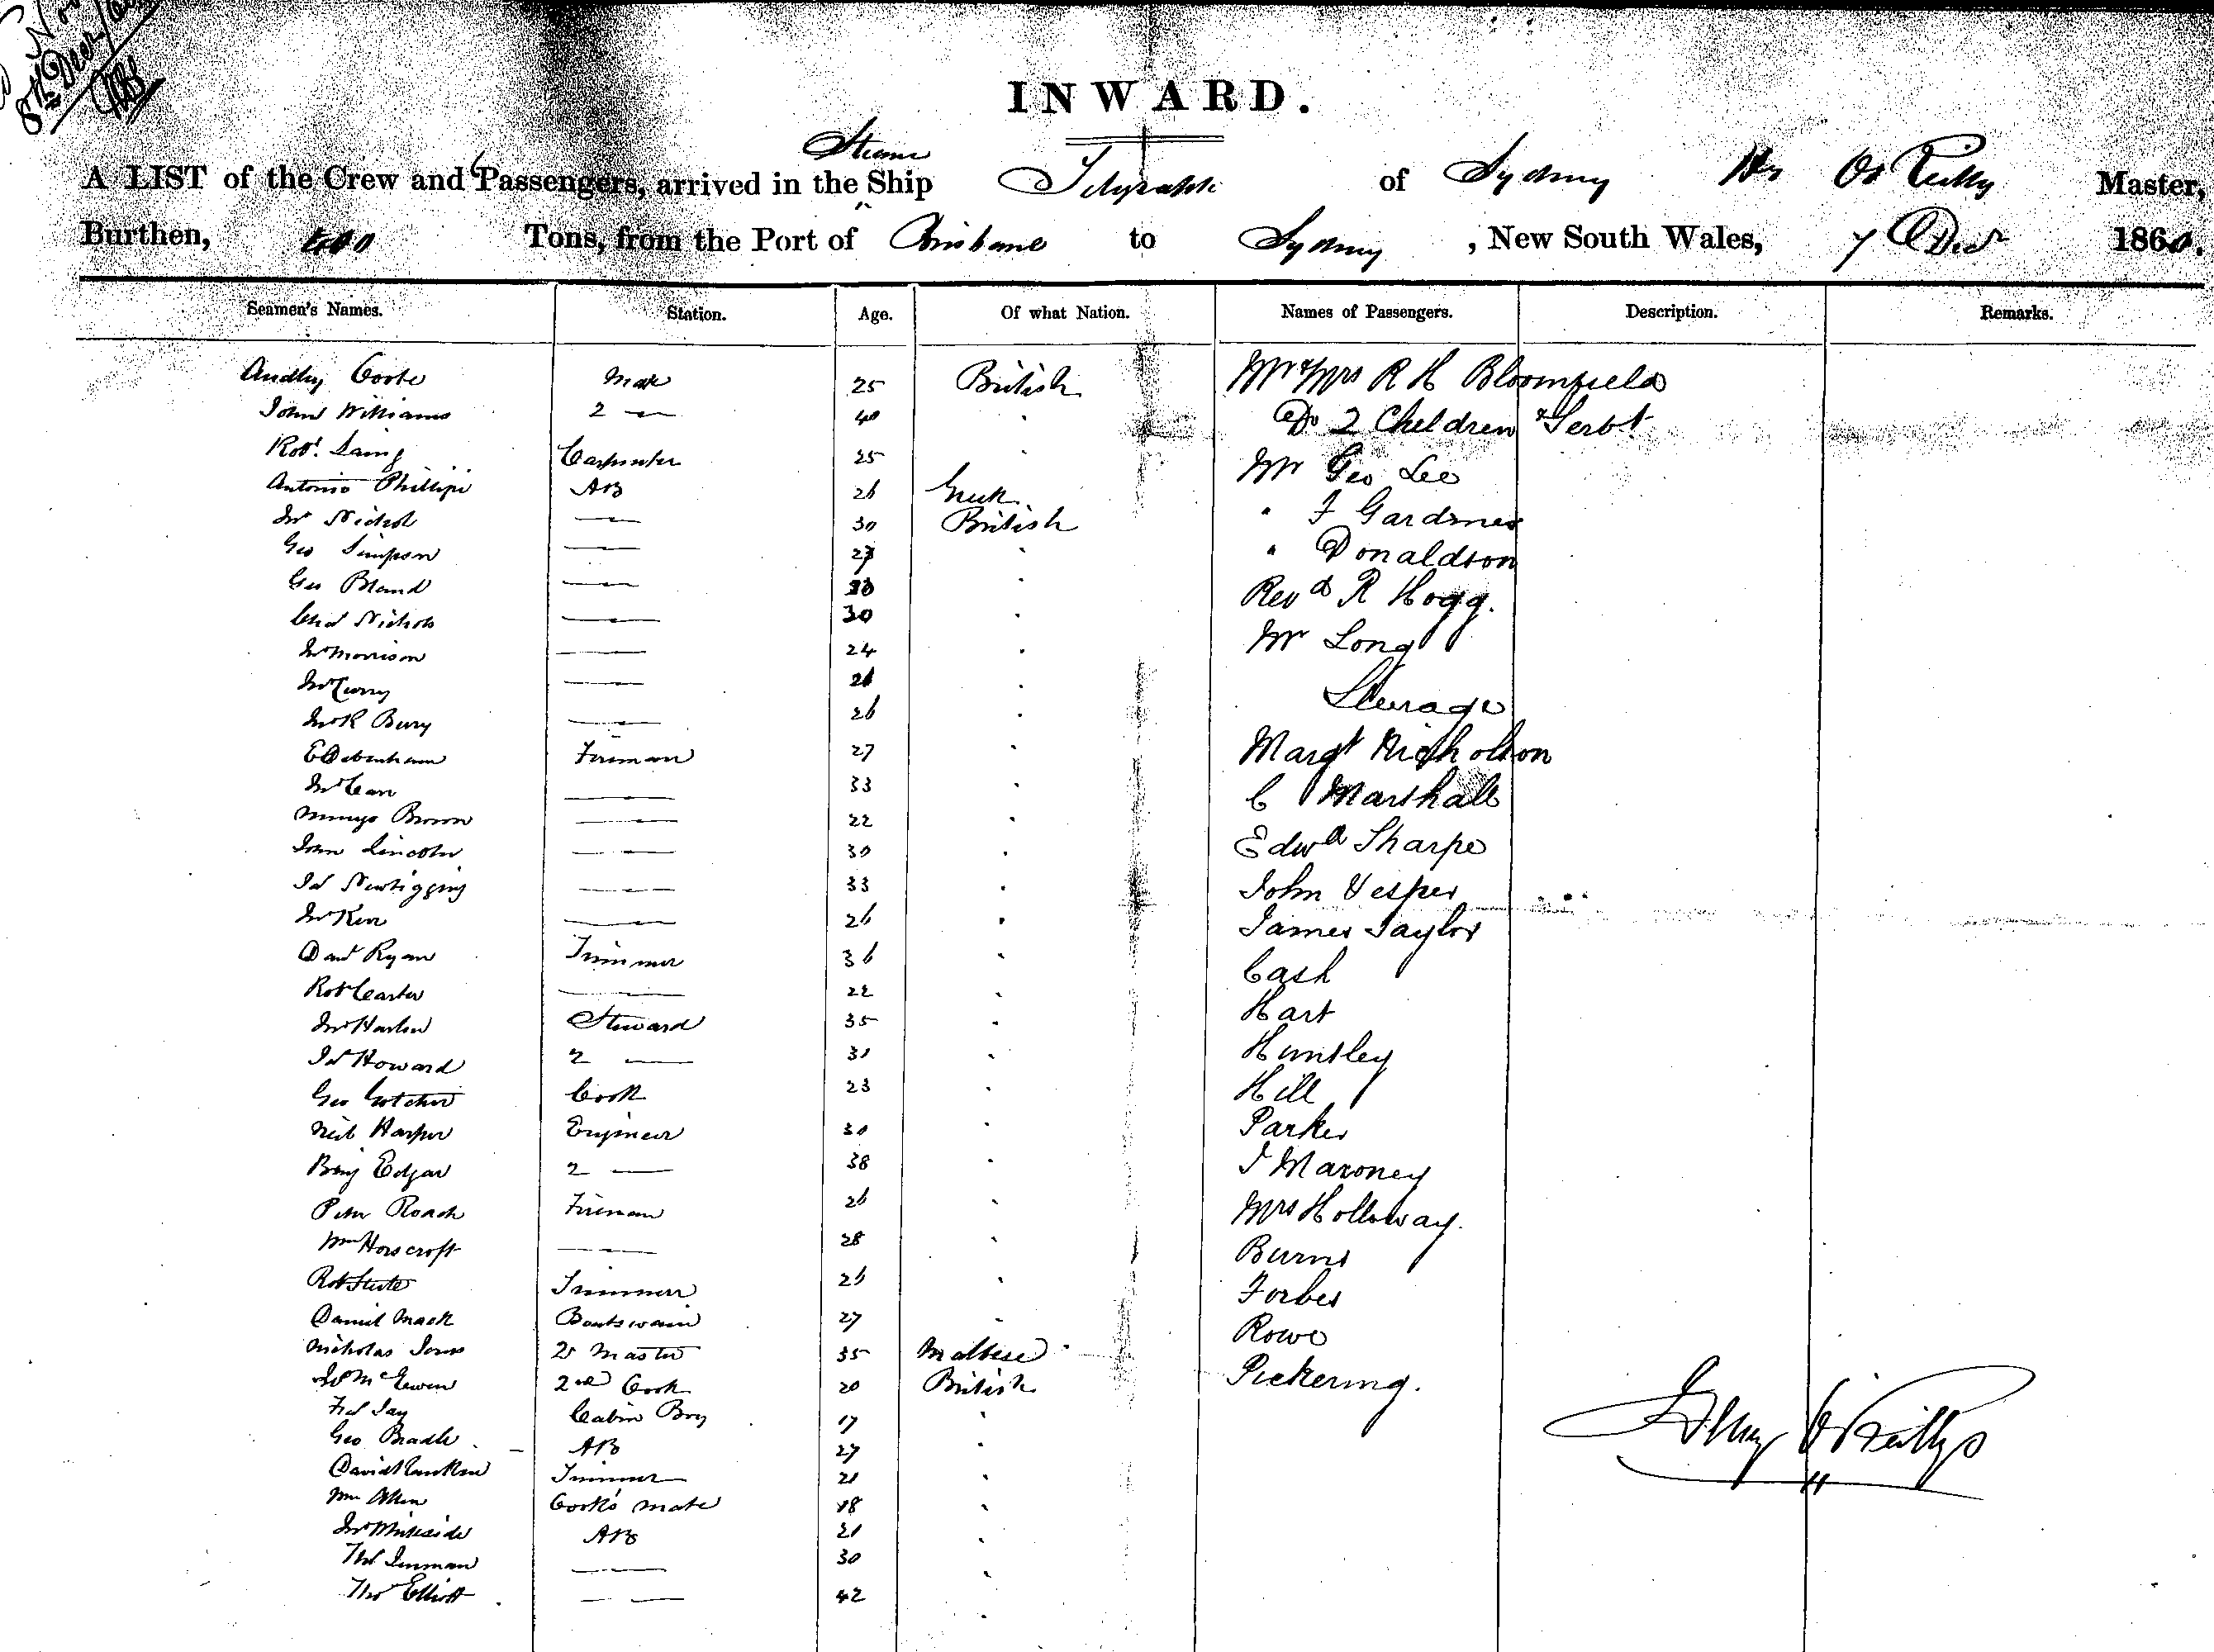 8th Decr
INWARD.
Steam
A LIST of the Crew and Passengers, arrived in the Ship Telegraph of Sydney Hy O'Reilly Master,
Burthen, 400 Tons, from the Port of Brisbane to Sydney, New South Wales, 7 Decr 1860.
Seamen's Names. Station. Age. Of what Nation. Names of Passengers. Description. Remarks.
Audley Coote Mate 25 British Mr & Mrs R H Bloomfield
John Williams 2 — 40 Do 2 Children & Servt
Robt. Laing Carpenter 25 Mr Geo Lee
Antonio Phillipi AB 26 Greek " F Gardner
Jno Nichol — 30 British " Donaldson
Geo Simpson — 27 Revd R Hogg.
Geo Bland — Mr Long
Chas Nichols — 30
Jno Morrison — 24 Steerage
Jno Curry — Margt Nicholson
Jno R Bury — 26 C Marshall
E Debenham Fireman 27 Edwd Sharpe
Jno Cean — 33 John Vesper
Mungo Brown — 22 James Taylor
John Lincoln — 30 Cash
Jas Newbigging — 33 Hart
Jno Kerr — 26 Huntley
Danl Ryan Trimmer 36 Hill
Robt Carter — 22 Parker
Jno Harlin Steward 35 J Maroney
Jas Howard 2 — 31 Mrs Holloway.
Geo Gotcher Cook 23 Burns
Neil Harper Engineer 30 Forbes
Benj Edgar 2 — 38 Rowe
Peter Roach Fireman 26 Pickering.
Wm Horscroft — 28
Robt Trimmer 26
Daniel Mack Boatswain 27
Nicholas Jones 2r Master 35 Maltese
McEwen 2nd Cook 20 British
Fred Jay Cabin Boy 17
Geo Bradle AB 27
David Rankin Trimmer 21
Wm Allen Cook's mate 18
Jno Whiteside AB 21
Thos Inman — 30
Thos Elliott — 42
Henry O'Reilly